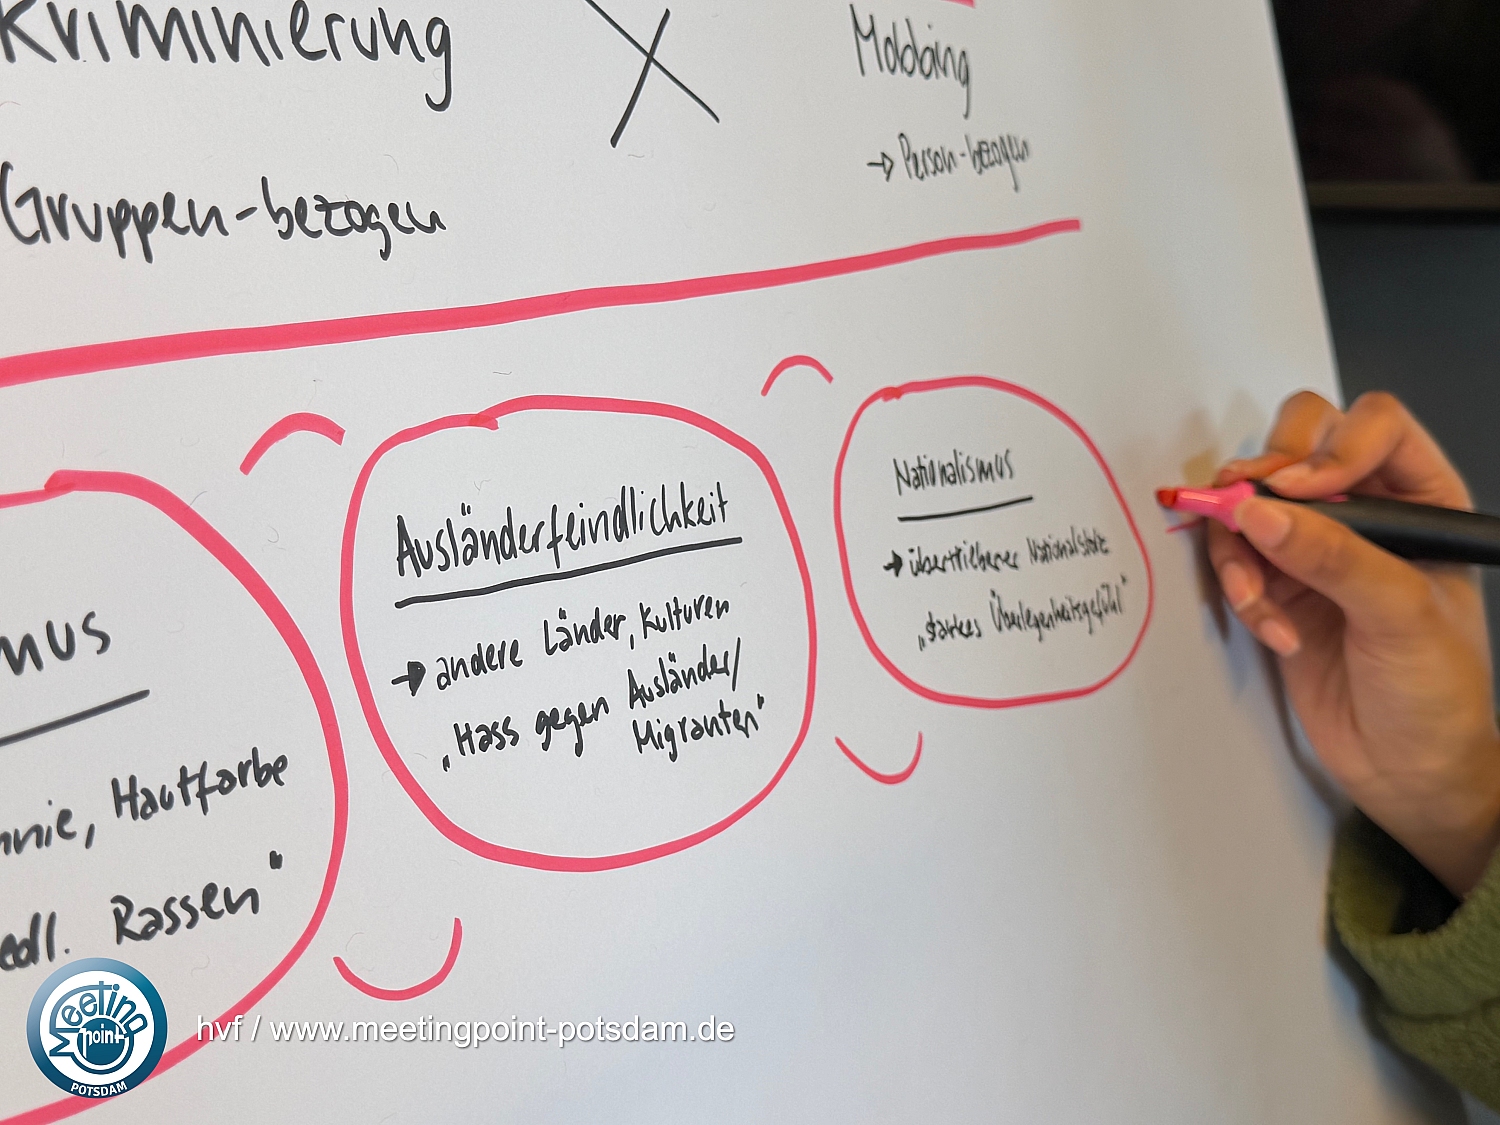 kriminierung
Mobbing
→ Person-bezogen
Gruppen-bezogen
mus
nnie, Hautfarbe
edl. Rassen"
Ausländerfeindlichkeit
→ andere Länder, Kulturen
„Hass gegen Ausländer/
Migranten"
Nationalismus
→ übertriebener Nationalstolz
„starkes Überlegenheitsgefühl"
Meeting
point
POTSDAM
hvf / www.meetingpoint-potsdam.de